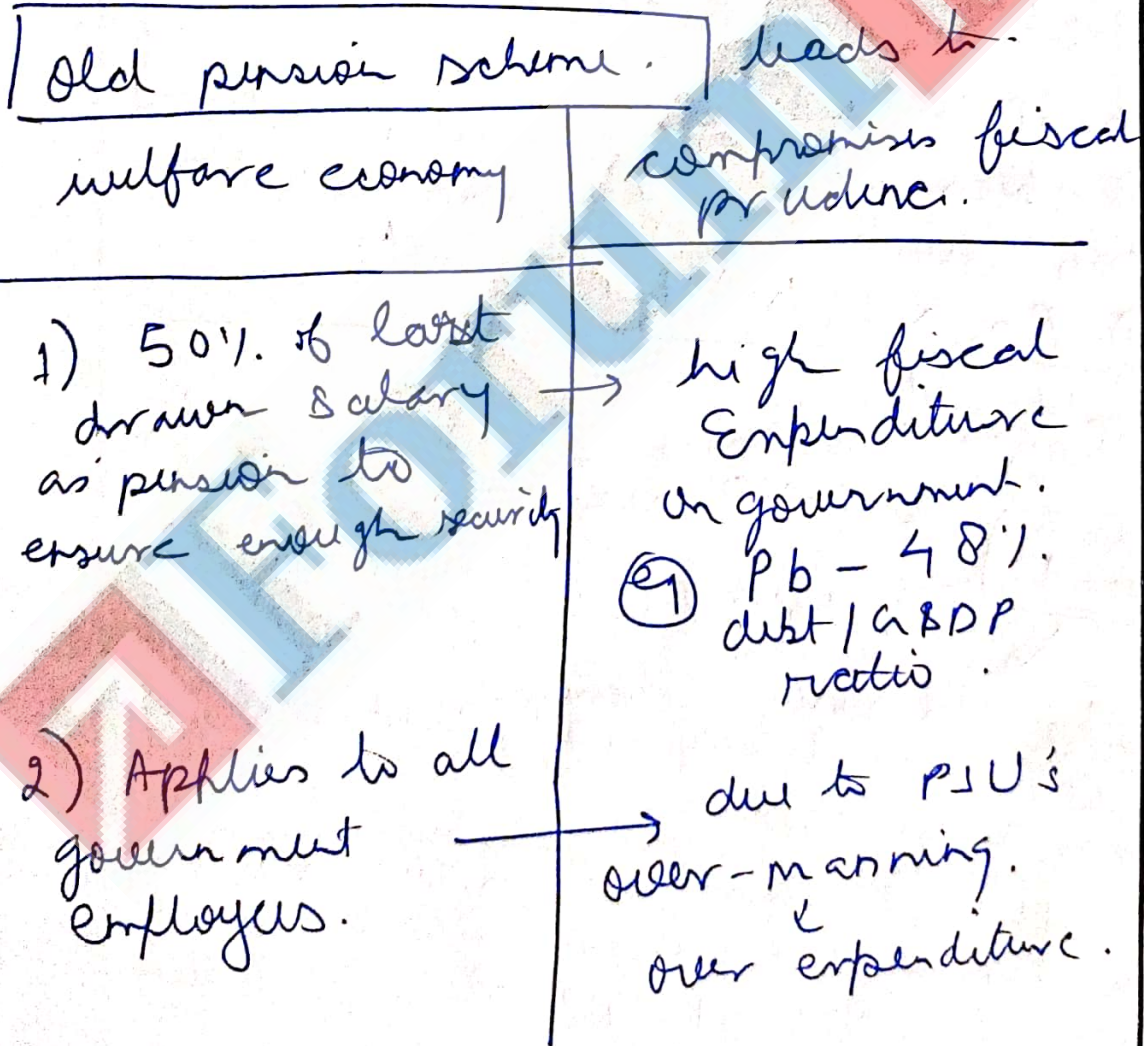 Old pension scheme. leads to
welfare economy
compromises fiscal
prudence.
1) 50% of last
drawn salary
as pension to
ensure enough security
high fiscal
Expenditure
on government.
eg Pb - 48%
debt / GSDP
ratio.
2) Applies to all
government
employees.
due to PSU's
over-manning.
over expenditure.
Forum